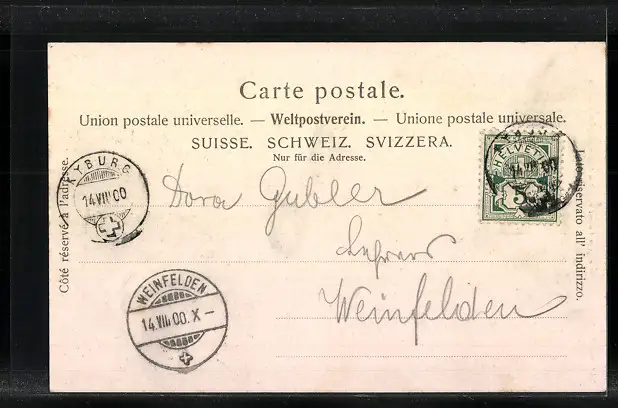 Carte postale.
Union postale universelle. — Weltpostverein. — Unione postale universale.
SUISSE. SCHWEIZ. SVIZZERA.
Nur für die Adresse.
Côté réservé à l'adresse.
Lato riservato all' indirizzo.
KYBURG
14.VIII.00
HELVETIA
14.VIII.00
5
Dora Gubler
Weinfelden
WEINFELDEN
14.VIII.00.X–